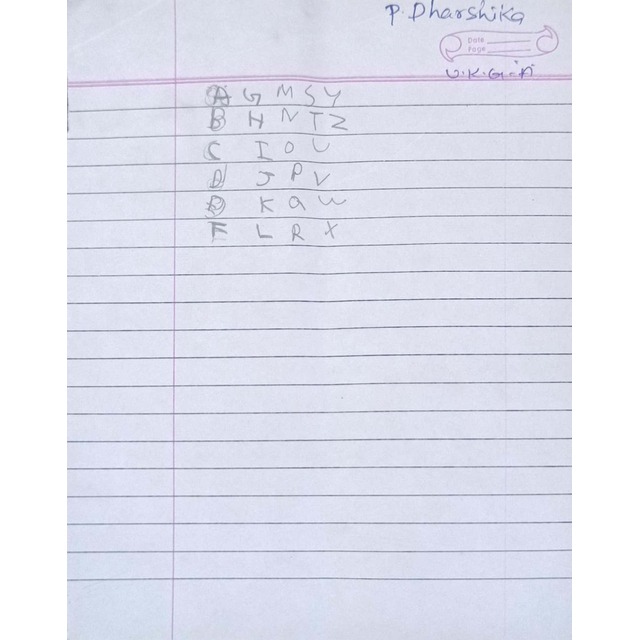 P. Dharshika
Date
Page
U.K.G-A
A G M S Y
B H N T Z
C I O U
D J P V
K Q W
F L R X